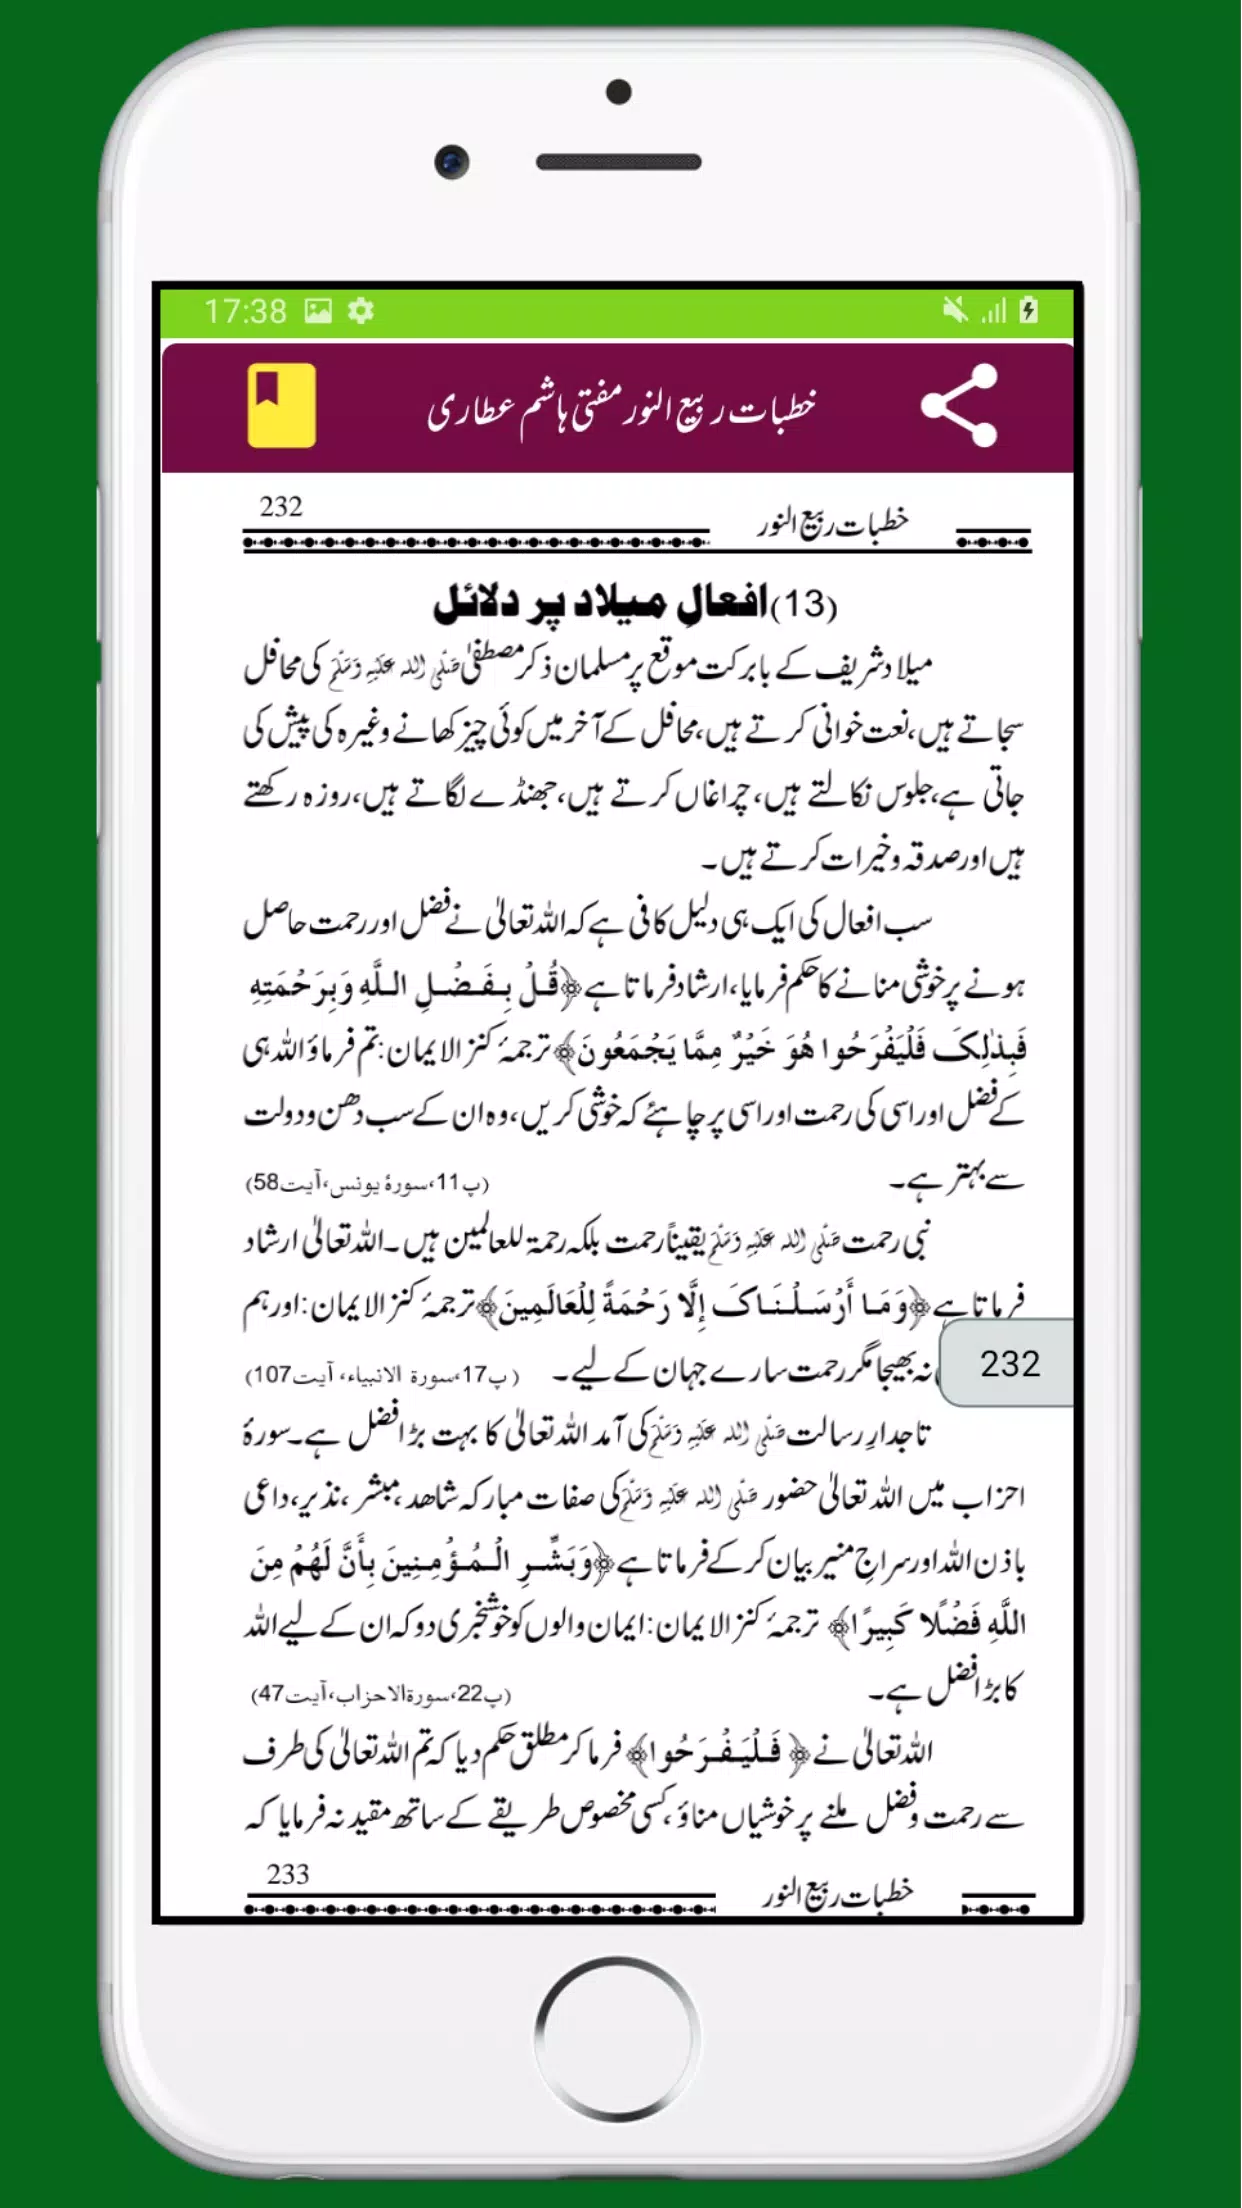 17:38
خطبات ربیع النور مفتی ہاشم عطاری
232
خطبات ربیع النور
(13) افعالِ میلاد پر دلائل
میلاد شریف کے بابرکت موقع پر مسلمان ذکر مصطفیٰ صَلَّی اللہ عَلَیْہِ وَسَلَّمَ کی محافل
سجاتے ہیں، نعت خوانی کرتے ہیں، محافل کے آخر میں کوئی چیز کھانے وغیرہ کی پیش کی
جاتی ہے، جلوس نکالتے ہیں، چراغاں کرتے ہیں، جھنڈے لگاتے ہیں، روزہ رکھتے
ہیں اور صدقہ و خیرات کرتے ہیں۔
سب افعال کی ایک ہی دلیل کافی ہے کہ اللہ تعالیٰ نے فضل اور رحمت حاصل
ہونے پر خوشی منانے کا حکم فرمایا، ارشاد فرماتا ہے ﴿قُلْ بِفَضْلِ اللَّهِ وَبِرَحْمَتِهِ
فَبِذٰلِکَ فَلْیَفْرَحُوا هُوَ خَیْرٌ مِمَّا یَجْمَعُونَ﴾ ترجمۂ کنز الایمان: تم فرماؤ اللہ ہی
کے فضل اور اسی کی رحمت اور اسی پر چاہئے کہ خوشی کریں، وہ ان کے سب دھن و دولت
سے بہتر ہے۔ (پ11، سورۂ یونس، آیت58)
نبی رحمت صَلَّی اللہ عَلَیْہِ وَسَلَّمَ یقیناً رحمت بلکہ رحمۃ للعالمین ہیں۔ اللہ تعالیٰ ارشاد
فرماتا ہے ﴿وَمَا أَرْسَلْنَاکَ إِلَّا رَحْمَةً لِلْعَالَمِینَ﴾ ترجمۂ کنز الایمان: اور ہم
نہ بھیجا مگر رحمت سارے جہان کے لیے۔ (پ17، سورۃ الانبیاء، آیت107)
232
تاجدارِ رسالت صَلَّی اللہ عَلَیْہِ وَسَلَّمَ کی آمد اللہ تعالیٰ کا بہت بڑا فضل ہے۔ سورۂ
احزاب میں اللہ تعالیٰ حضور صَلَّی اللہ عَلَیْہِ وَسَلَّمَ کی صفات مبارکہ شاھد، مبشر، نذیر، داعی
باذن اللہ اور سراجِ منیر بیان کر کے فرماتا ہے ﴿وَبَشِّرِ الْمُؤْمِنِینَ بِأَنَّ لَهُمْ مِنَ
اللَّهِ فَضْلًا کَبِیرًا﴾ ترجمۂ کنز الایمان: ایمان والوں کو خوشخبری دو کہ ان کے لیے اللہ
کا بڑا فضل ہے۔ (پ22، سورۃ الاحزاب، آیت47)
اللہ تعالیٰ نے ﴿فَلْیَفْرَحُوا﴾ فرما کر مطلق حکم دیا کہ تم اللہ تعالیٰ کی طرف
سے رحمت و فضل ملنے پر خوشیاں مناؤ، کسی مخصوص طریقے کے ساتھ مقید نہ فرمایا کہ
233
خطبات ربیع النور